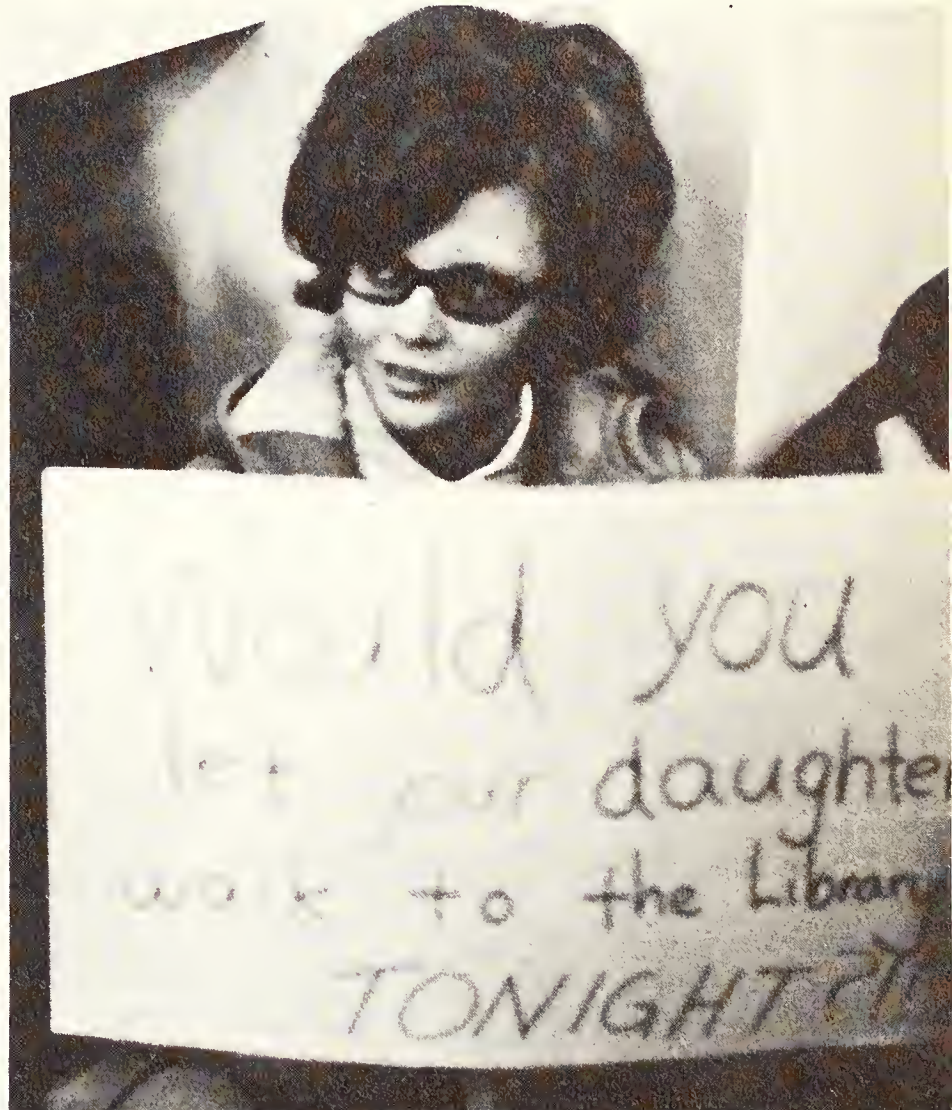 Would you
let our daughter
walk to the Library
TONIGHT??